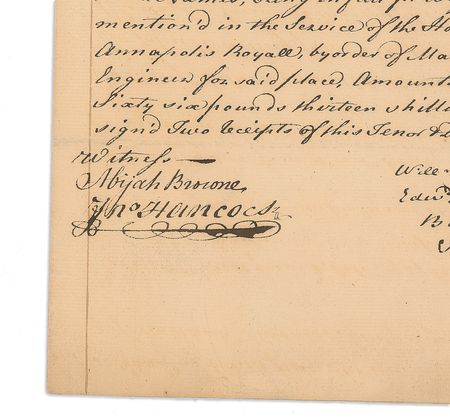 mention'd in the Service of the
Annapolis Royall, by order of
Engineer for said place, Amount
Sixty six pounds thirteen shill
sign'd Two receipts of this Tenor &
Witness
Abijah Browne
Jno Hancock
Will
Edw